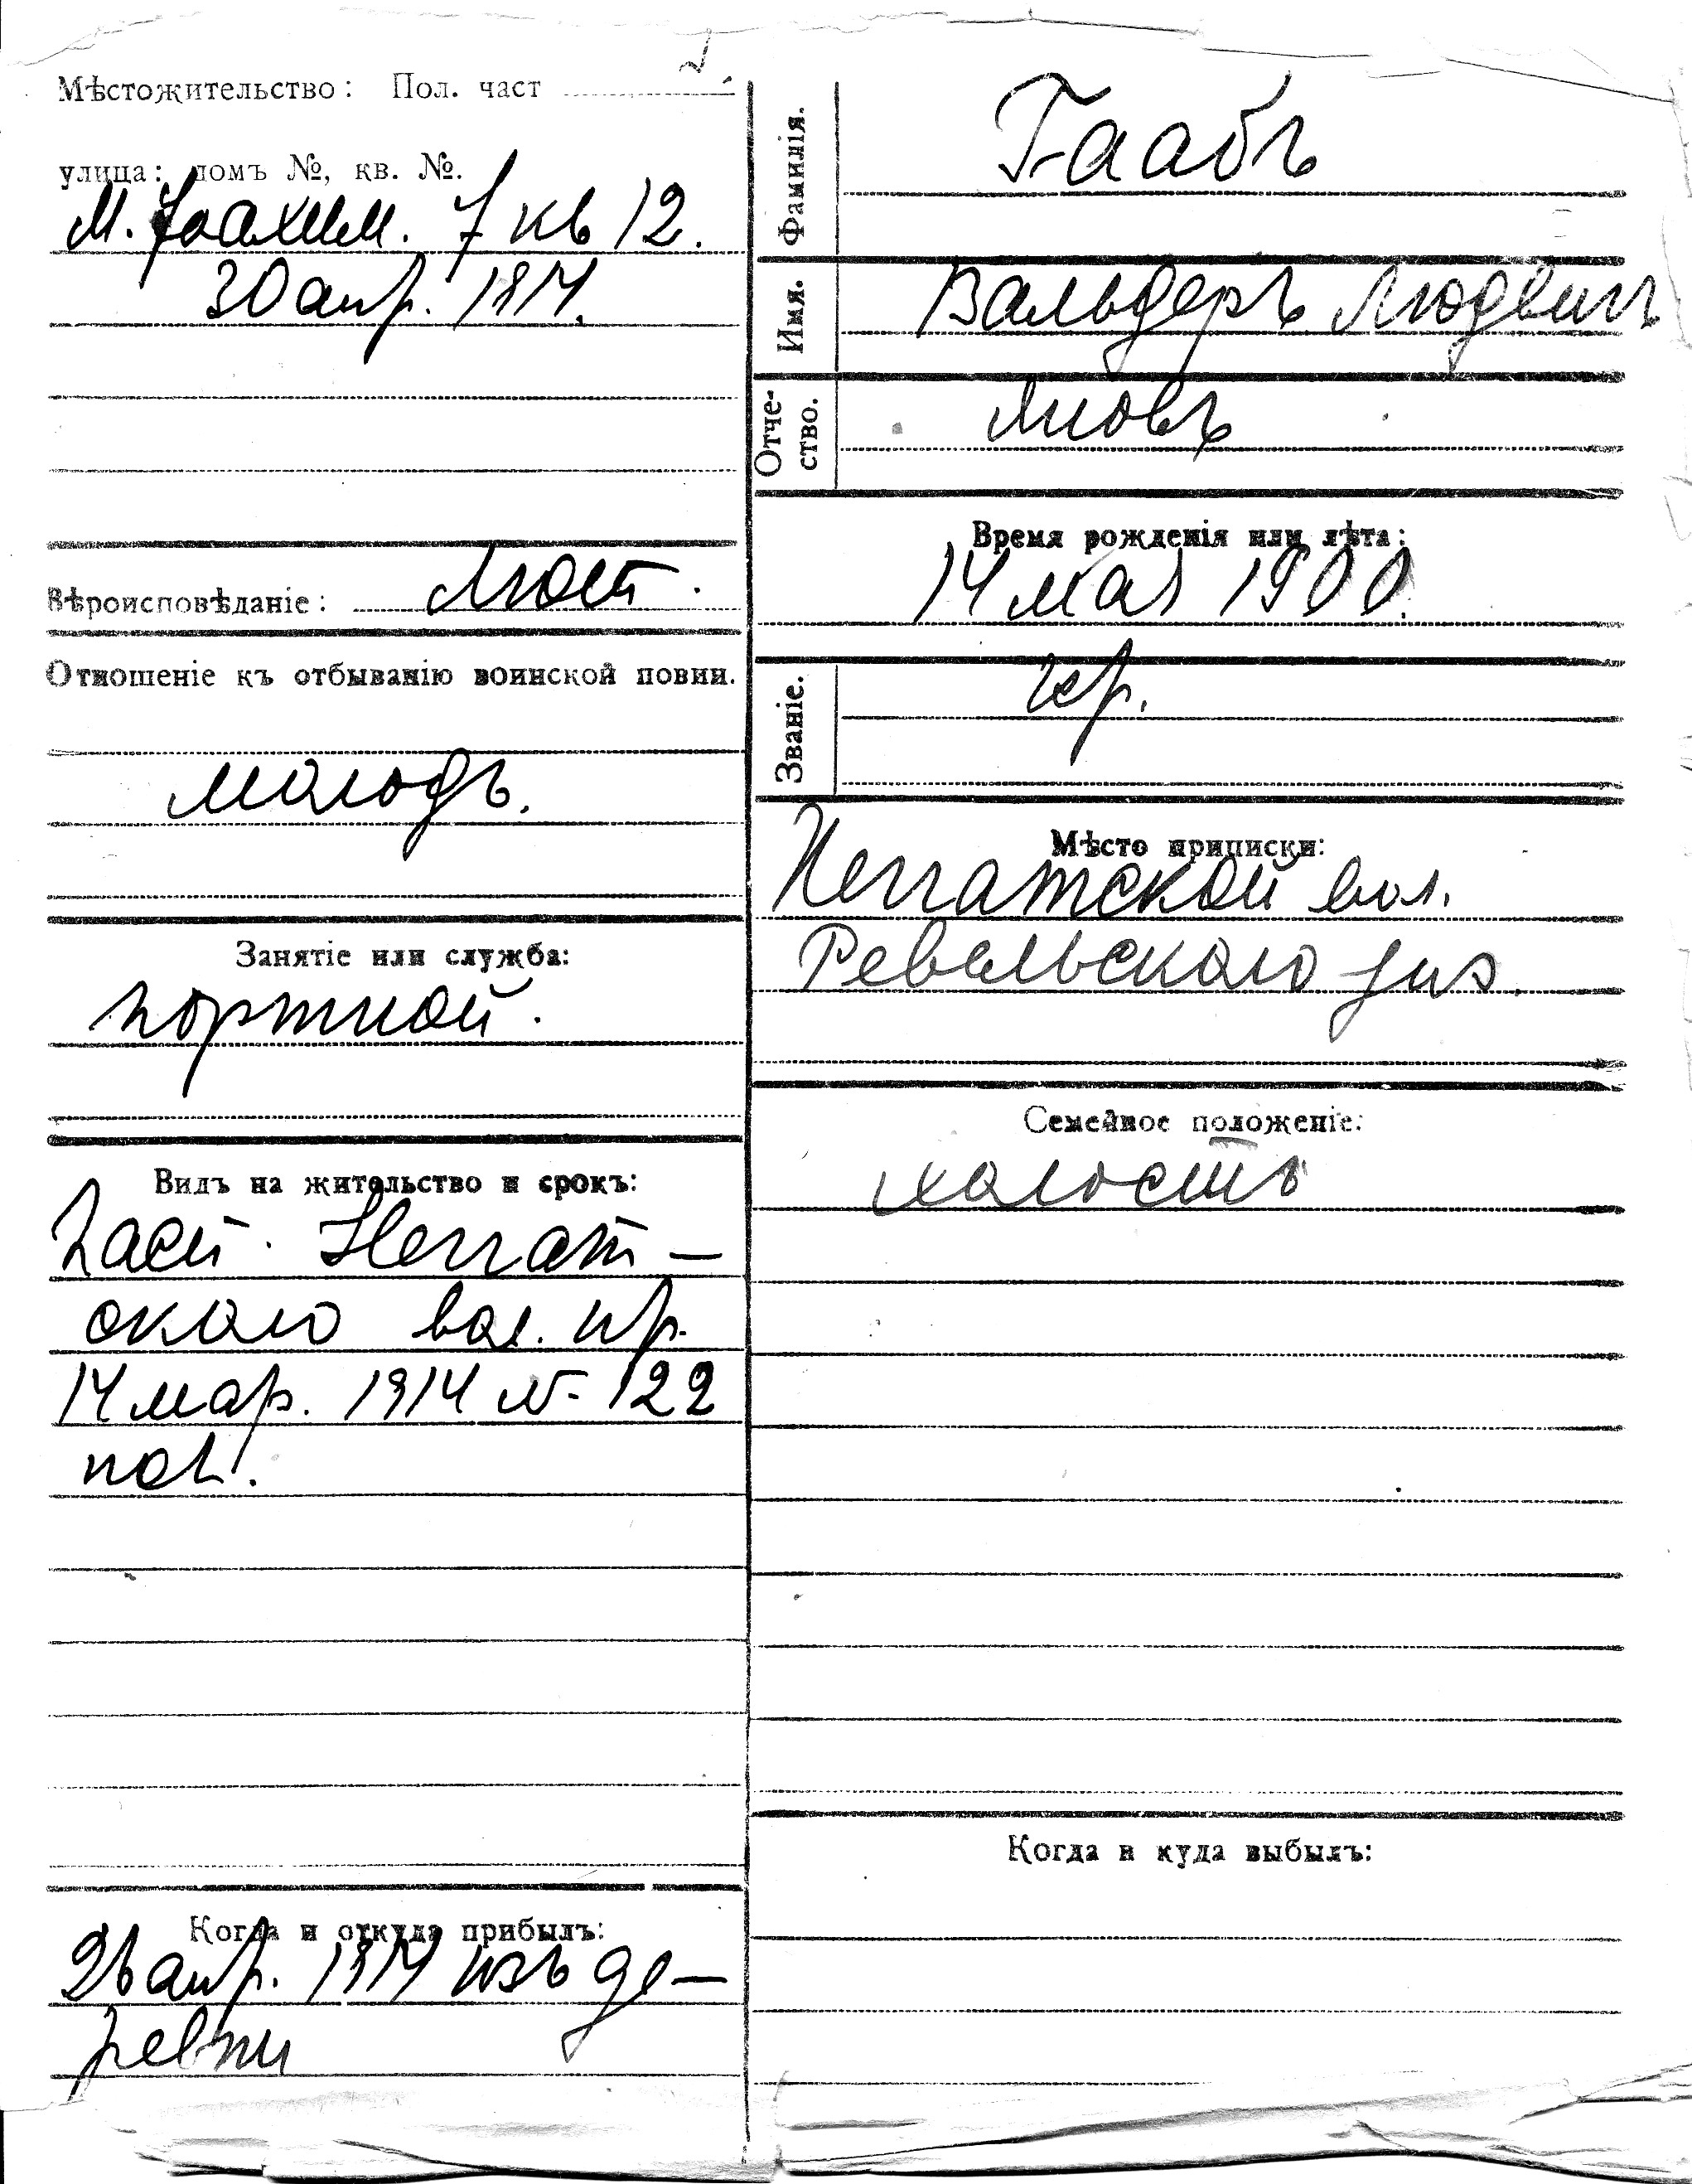 Мѣстожительство: Пол. част
улица: домъ №, кв. №.
М. Іоахим. 7 кв 12.
30 апр. 1914.
Вѣроисповѣданіе: Лют.
Отношеніе къ отбыванію воинской повин.
молодъ.
Занятіе или служба:
портной.
Видъ на жительство и срокъ:
Пасп.
скаго вол. пр.
14 мар. 1914 № 122
Когда и откуда прибылъ:
26 апр. 1914 изъ де-
ревни
Фамилія. Гаабъ
Имя. Вальдеръ Людвигъ
Отче-
ство. Яновъ
Время рожденія или лѣта:
14 мая 1900.
Званіе. кр.
Мѣсто приписки:
вол.
Ревельского у.
Семейное положеніе:
холостъ
Когда и куда выбылъ: